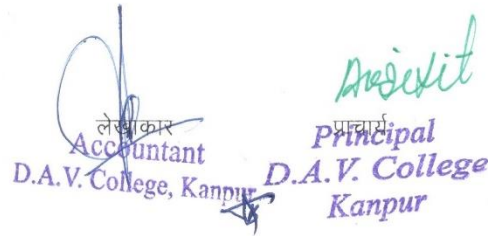 लेखाकार
Accountant
D.A.V. College, Kanpur
प्राचार्य
Principal
D.A.V. College
Kanpur